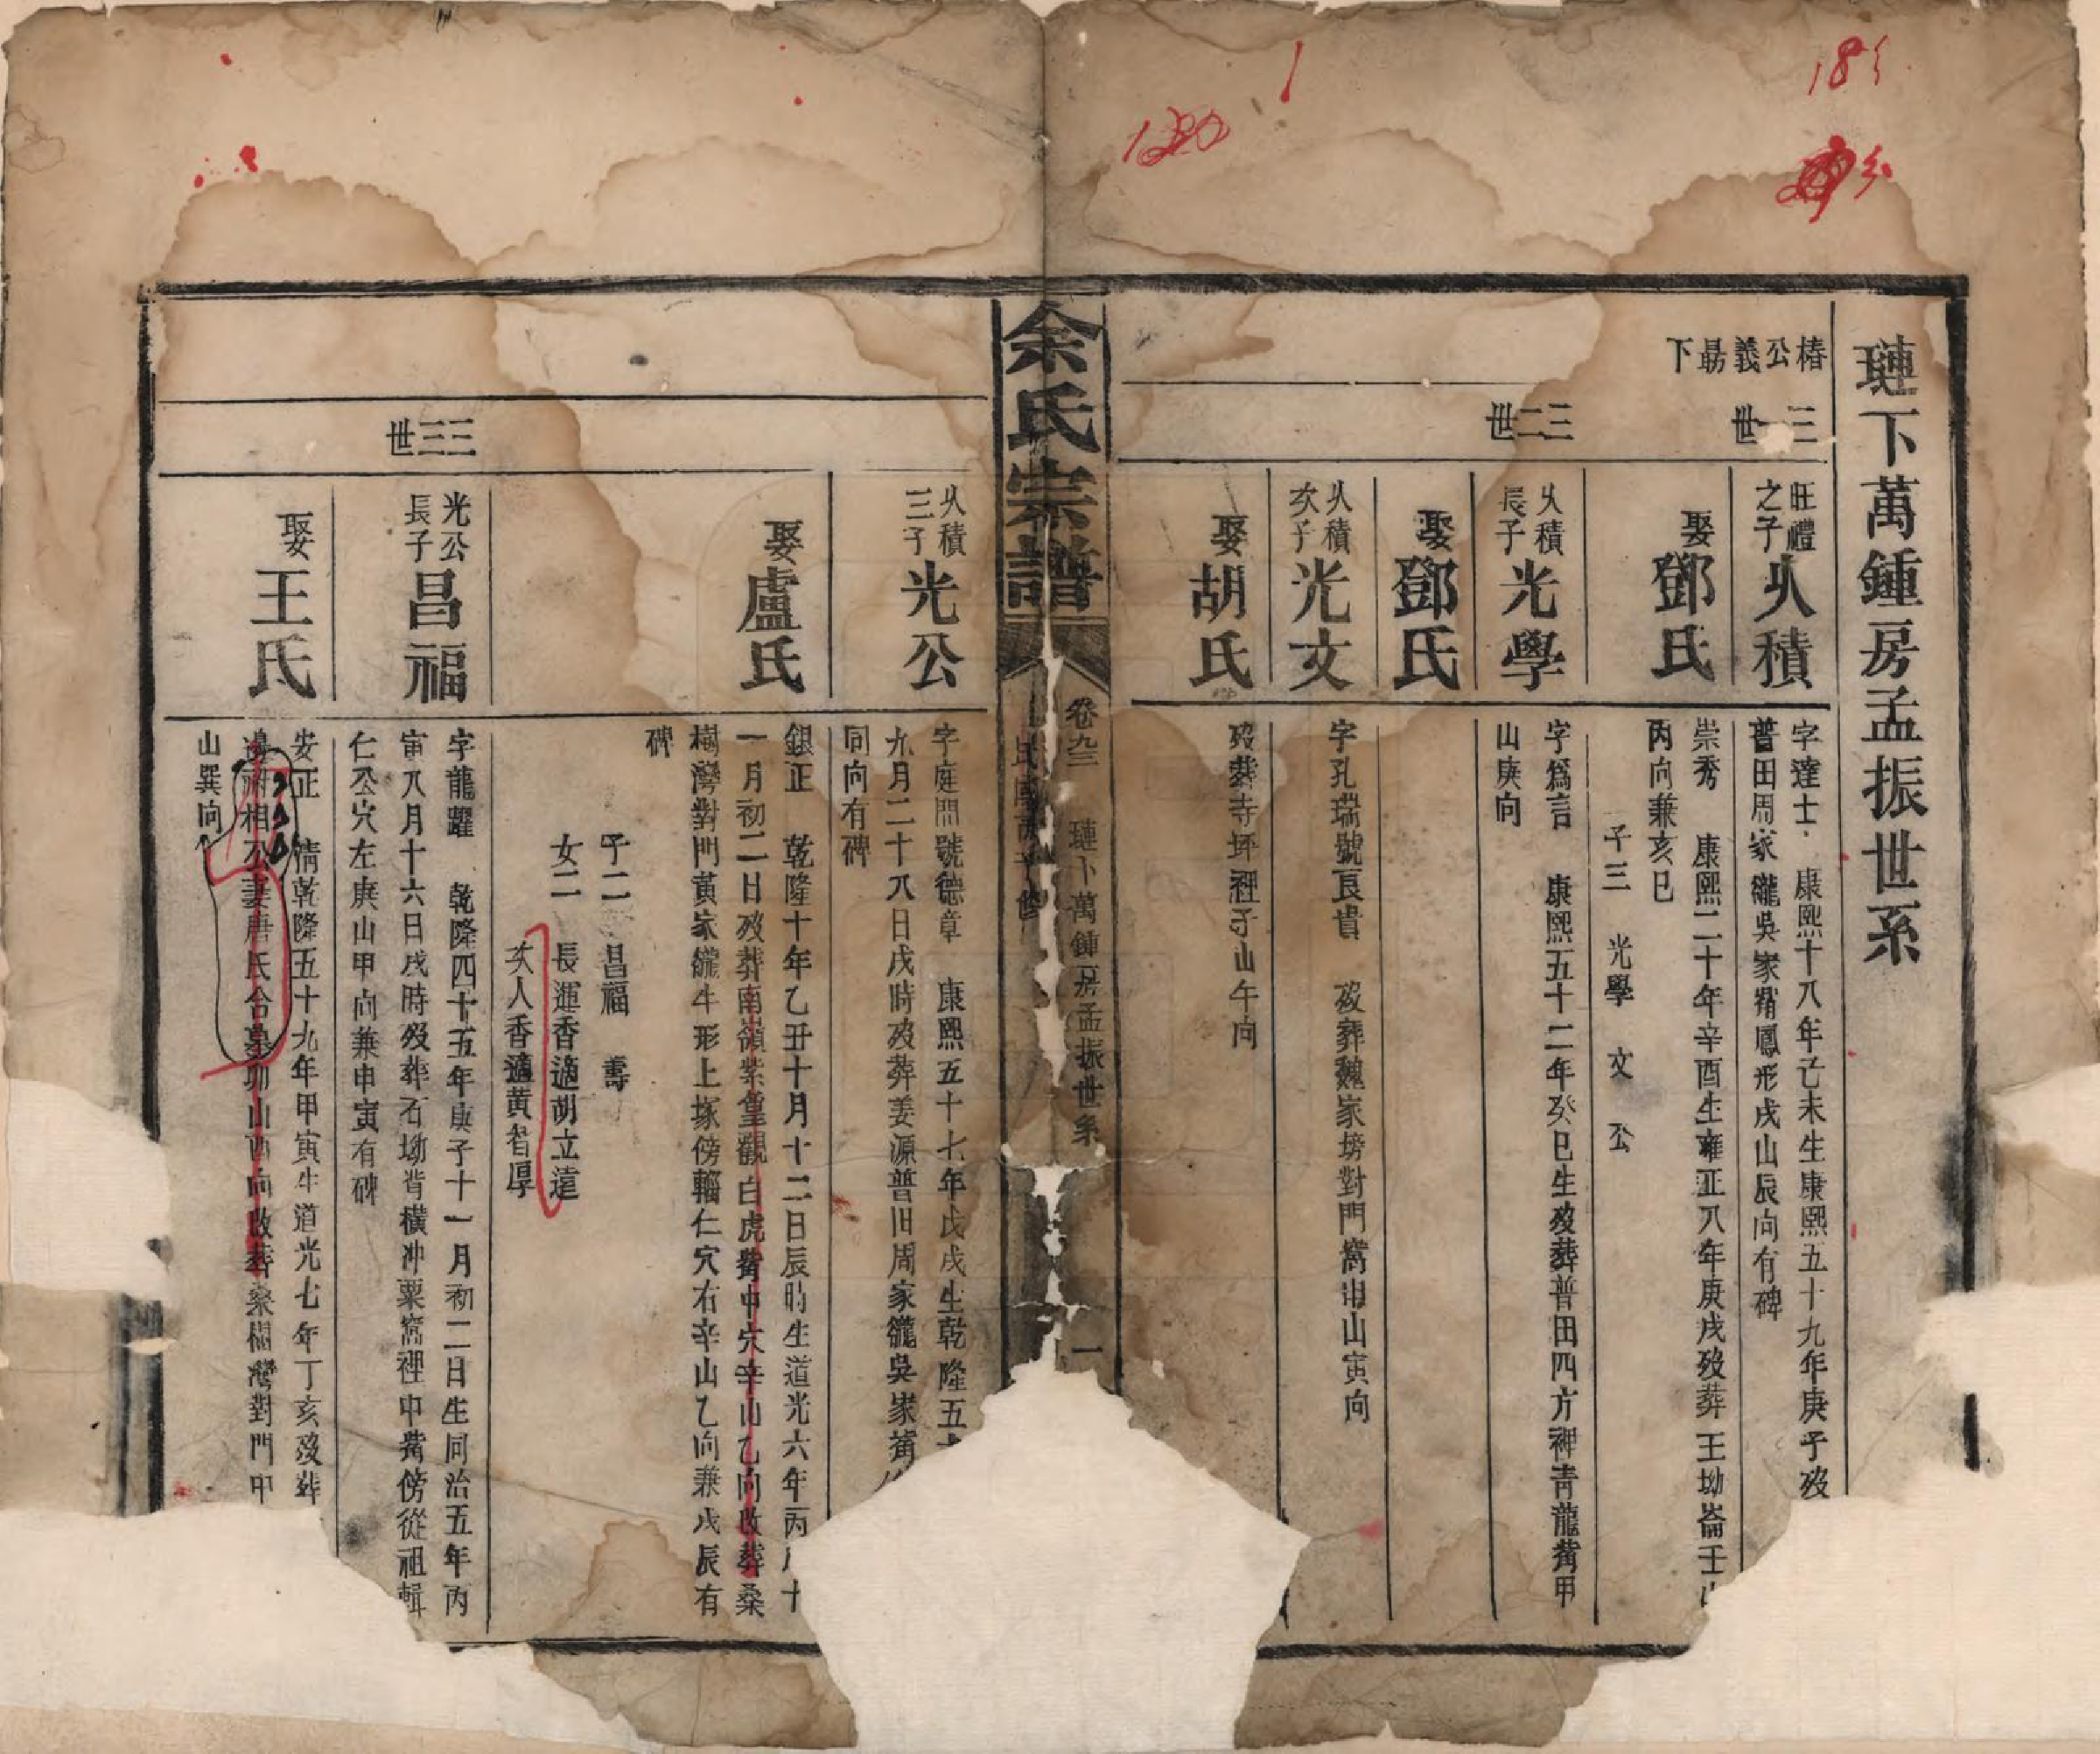 璉下萬鍾房孟振世系
椿公義勗下
三一世
旺禮之子 火積
字達士 康熙十八年己未生康熙五十九年庚子歿
普田周家隴吳家獨鳳形戍山辰向有碑
娶鄧氏
崇秀 康熙二十年辛酉生雍正八年庚戍歿葬王坳崙壬山
丙向兼亥巳
子三 光學 文 公
三二世
火積長子 光學
字爲言 康熙五十二年癸巳生歿葬普田四方神青龍觜甲
山庚向
娶鄧氏
火積次子 光文
字孔瑞號良貴 歿葬魏家塝對門窩山寅向
娶胡氏
歿葬寺坪裡子山午向
余氏宗譜
卷九三 璉下萬鍾房孟振世系 一
火積三子 光公
字庭問號德章 康熙五十七年戊戍生乾隆五十
九月二十八日戍時歿葬姜源普田周家隴吳家
同向有碑
娶盧氏
銀正 乾隆十年乙丑十月十二日辰時生道光六年丙 十
一月初二日歿葬南嶺紫堂觀白虎觜中穴辛山乙向改葬桑
樹灣對門黃家隴牛形上塚傍輜仁穴右辛山乙向兼戍辰有
碑
子二 昌福 壽
女二 長運香適胡立遠
次人香適黃智厚
三三世
光公長子 昌福
字龍躍 乾隆四十五年庚子十一月初二日生同治五年丙
寅八月十六日戍時歿葬石坳背橫沖粟窩裡中觜傍從祖輯
仁公穴左庚山甲向兼申寅有碑
娶王氏
安正 清乾隆五十九年甲寅生道光七年丁亥歿葬
邊附相公妻唐氏合墓卯山酉向改葬桑樹灣對門中
山巽向